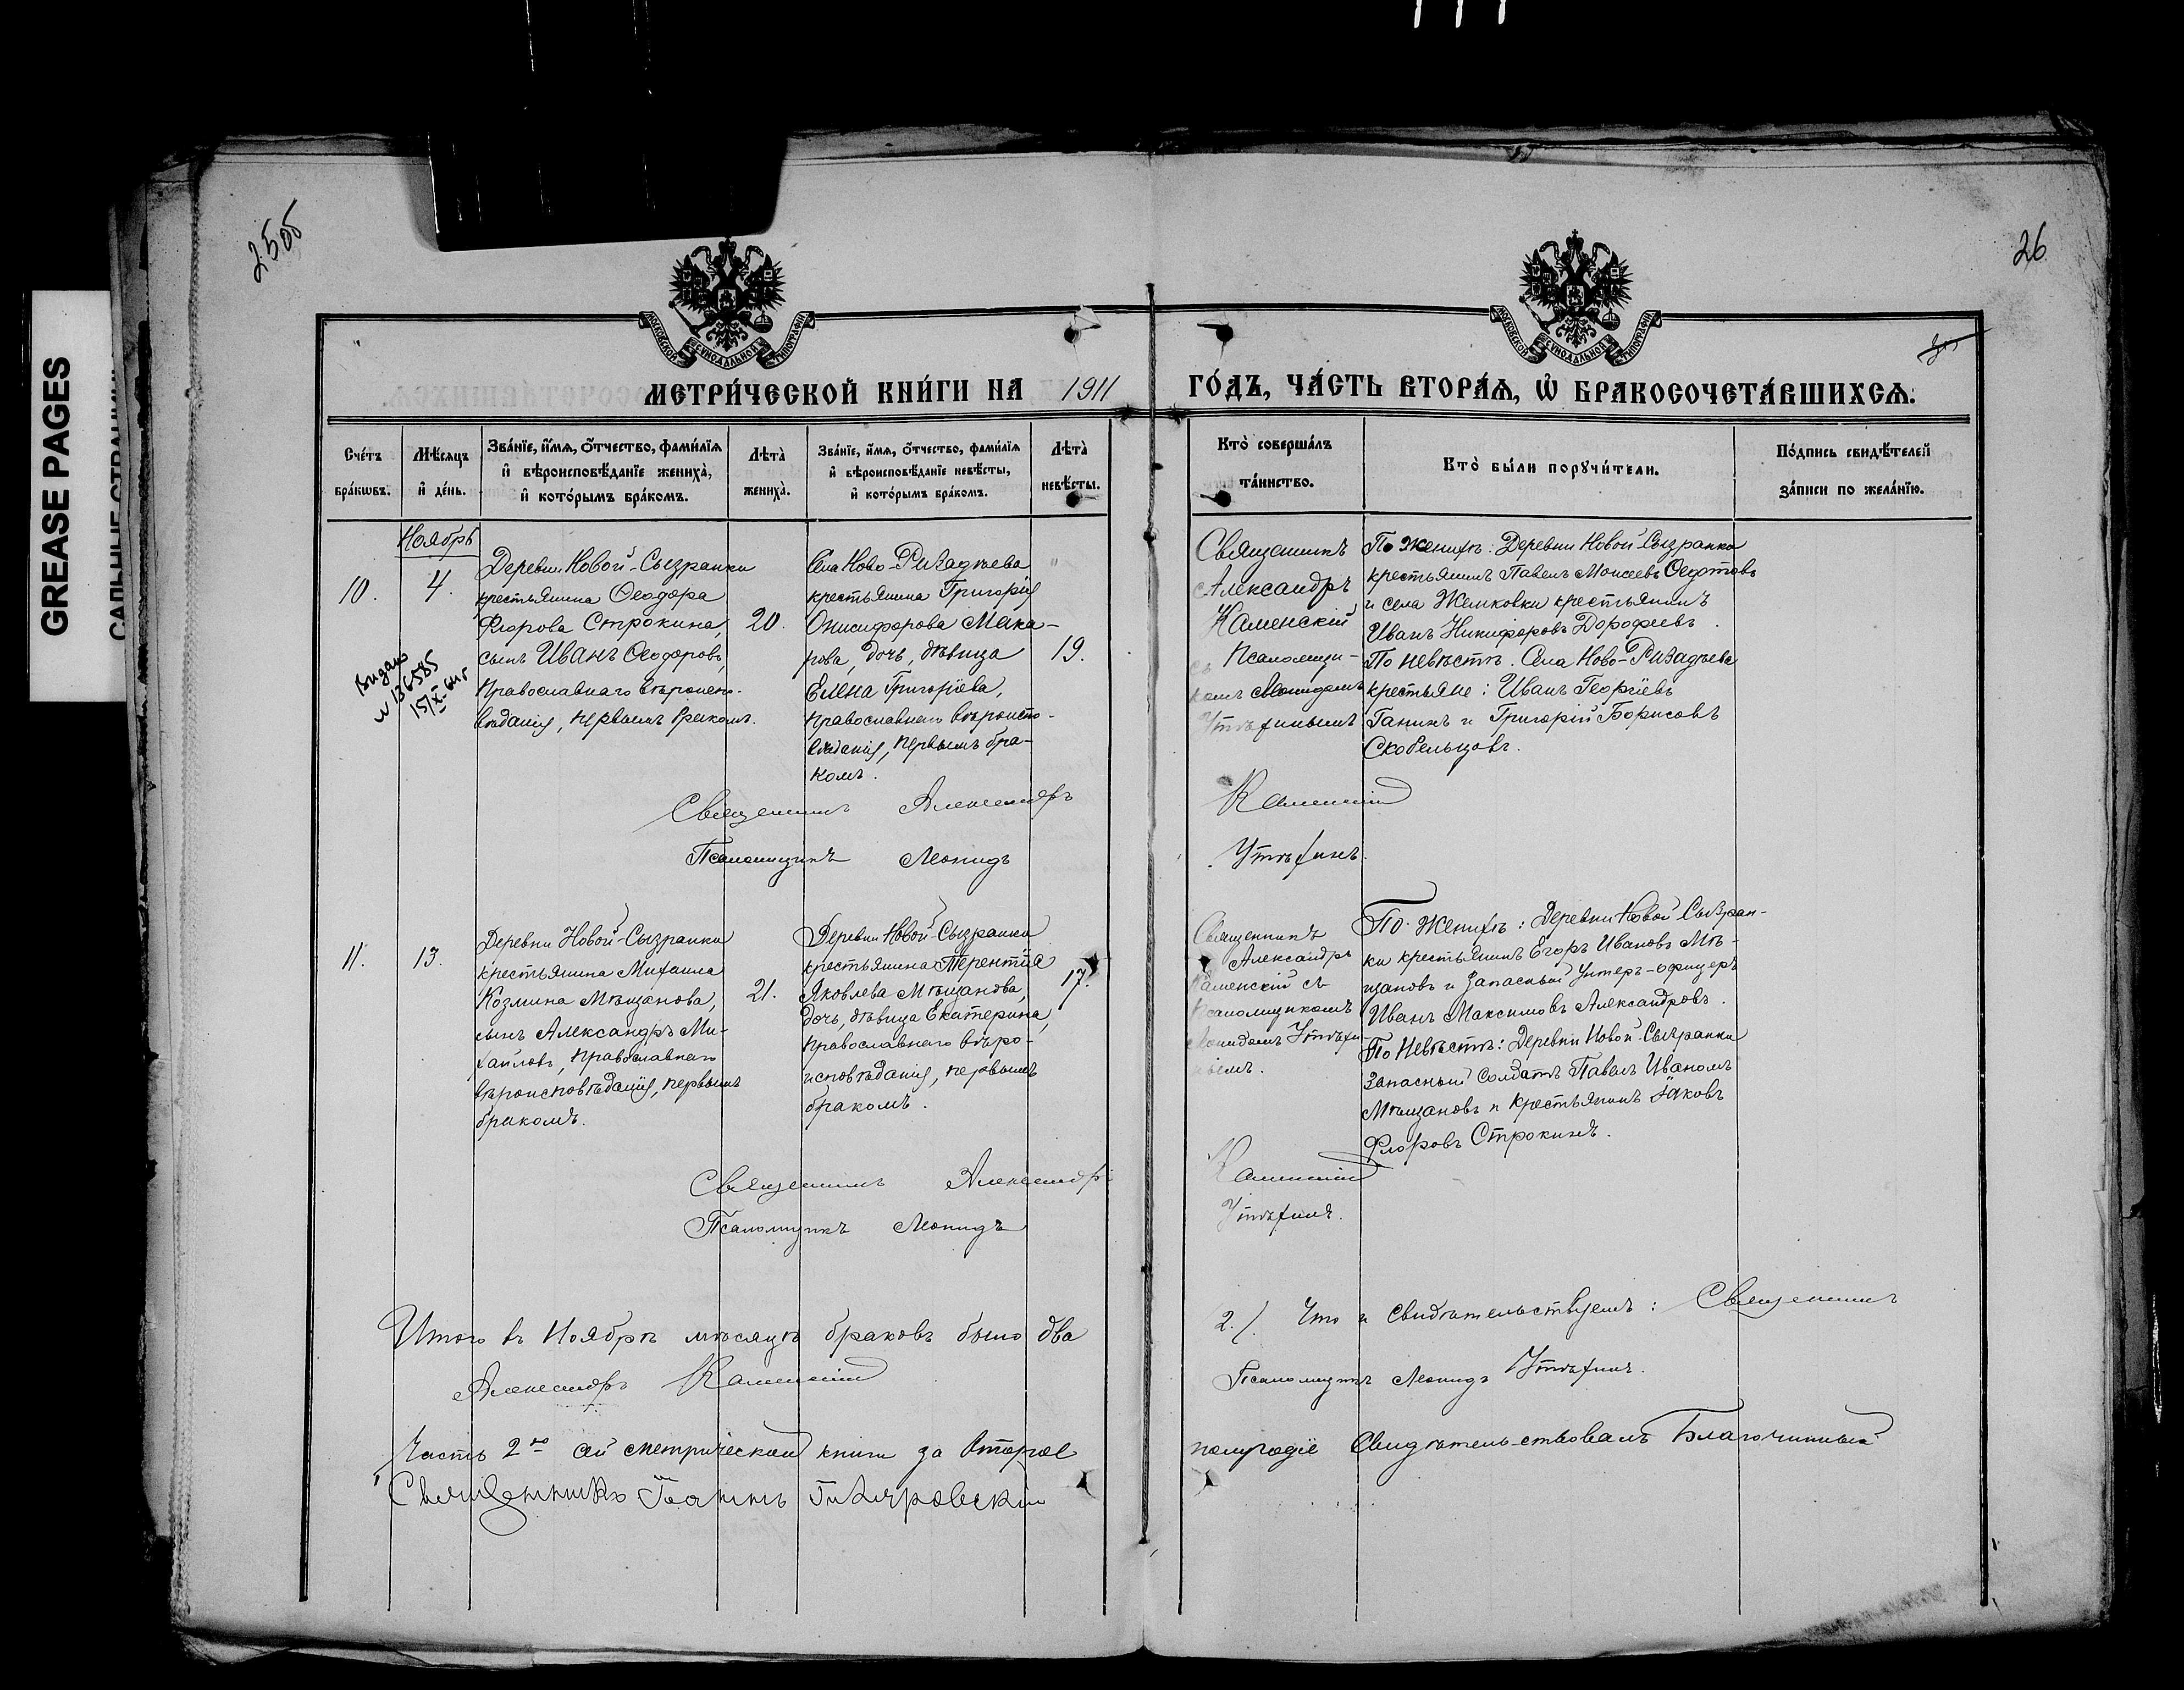 GREASE PAGES
25об
26
МЕТРИ́ЧЕСКОЙ КНИ́ГИ НА 1911 ГО́ДЪ, ЧА́СТЬ ВТОРА́Я, Ѡ҆ БРАКОСОЧЕТА́ВШИХСЯ.
Сче́тъ бра́кѡвъ.
Мѣ́сяцъ и҆ де́нь.
Зва́нїе, и҆́мя, ѻ҆́тчество, фами́лїя
и҆ вѣроисповѣ́данїе жениха̀,
и҆ кото́рымъ бра́комъ.
Лѣта̀ жениха̀.
Зва́нїе, и҆́мя, ѻ҆́тчество, фами́лїя
и҆ вѣроисповѣ́данїе невѣ́сты,
и҆ кото́рымъ бра́комъ.
Лѣта̀ невѣ́сты.
Кто̀ соверша́лъ
та́инство.
Кто̀ бы́ли порꙋчи́тели.
По́дпись свидѣ́телей
за́писи по жела́нїю.
Ноябрь
10.
4.
Выдано
№ 136585
15/X-61г
Деревни Новой-Сызранки
крестьянина Ѳеодора
Флорова Строкина,
сынъ Иванъ Ѳеодоровъ,
православнаго вѣроиспо-
вѣданія, первымъ бракомъ.
20.
Села Ново-Ризадѣева
крестьянина Григорія
Онисифорова Мака-
рова, дочь, дѣвица
Елена Григоріева,
православнаго вѣроиспо-
вѣданія, первымъ бра-
комъ.
19.
Священникъ
Александръ
Каменскій
съ Псаломщи-
комъ Леонидомъ
Утѣхинымъ
По женихѣ: Деревни Новой-Сызранки
крестьянинъ Павелъ Моисеевъ Ѳедотовъ
и села Жемковки крестьянинъ
Иванъ Никифоровъ Дорофеевъ.
По невѣстѣ. Села Ново-Ризадѣева
крестьяне: Иванъ Георгіевъ
Ганинъ и Григорій Борисовъ
Скобельцовъ.
Священникъ Александръ Каменскій
Псаломщикъ Леонидъ Утѣхинъ.
11.
13.
Деревни Новой-Сызранки
крестьянина Михаила
Козмина Мѣщанова,
сынъ Александръ Ми-
хайловъ, православнаго
вѣроисповѣданія, первымъ
бракомъ.
21.
Деревни Новой-Сызранки
крестьянина Терентія
Яковлева Мѣщанова,
дочь, дѣвица Екатерина,
православнаго вѣро-
исповѣданія, первымъ
бракомъ.
17.
Священникъ
Александръ
Каменскій съ
Псаломщикомъ
Леонидомъ Утѣхи-
нымъ.
По женихѣ: Деревни Новой Сызран-
ки крестьянинъ Егоръ Ивановъ Мѣ-
щановъ и Запасный Унтеръ-офицеръ
Иванъ Максимовъ Александровъ.
По Невѣстѣ: Деревни Новой-Сызранки
Запасный солдатъ Павелъ Ивановъ
Мѣщановъ и крестьянинъ Яковъ
Флоровъ Строкинъ.
Священникъ Александръ Каменскій
Псаломщикъ Леонидъ Утѣхинъ.
Итого въ Ноябрѣ мѣсяцѣ браковъ было два 2./. Что и свидѣтельствуемъ: Священникъ
Александръ Каменскій Псаломщикъ Леонидъ Утѣхинъ.
Часть 2ю сей метрической книги за второе полугодіе свидѣтельствовалъ Благочинный
Священникъ Іоаннъ Гиляровскій